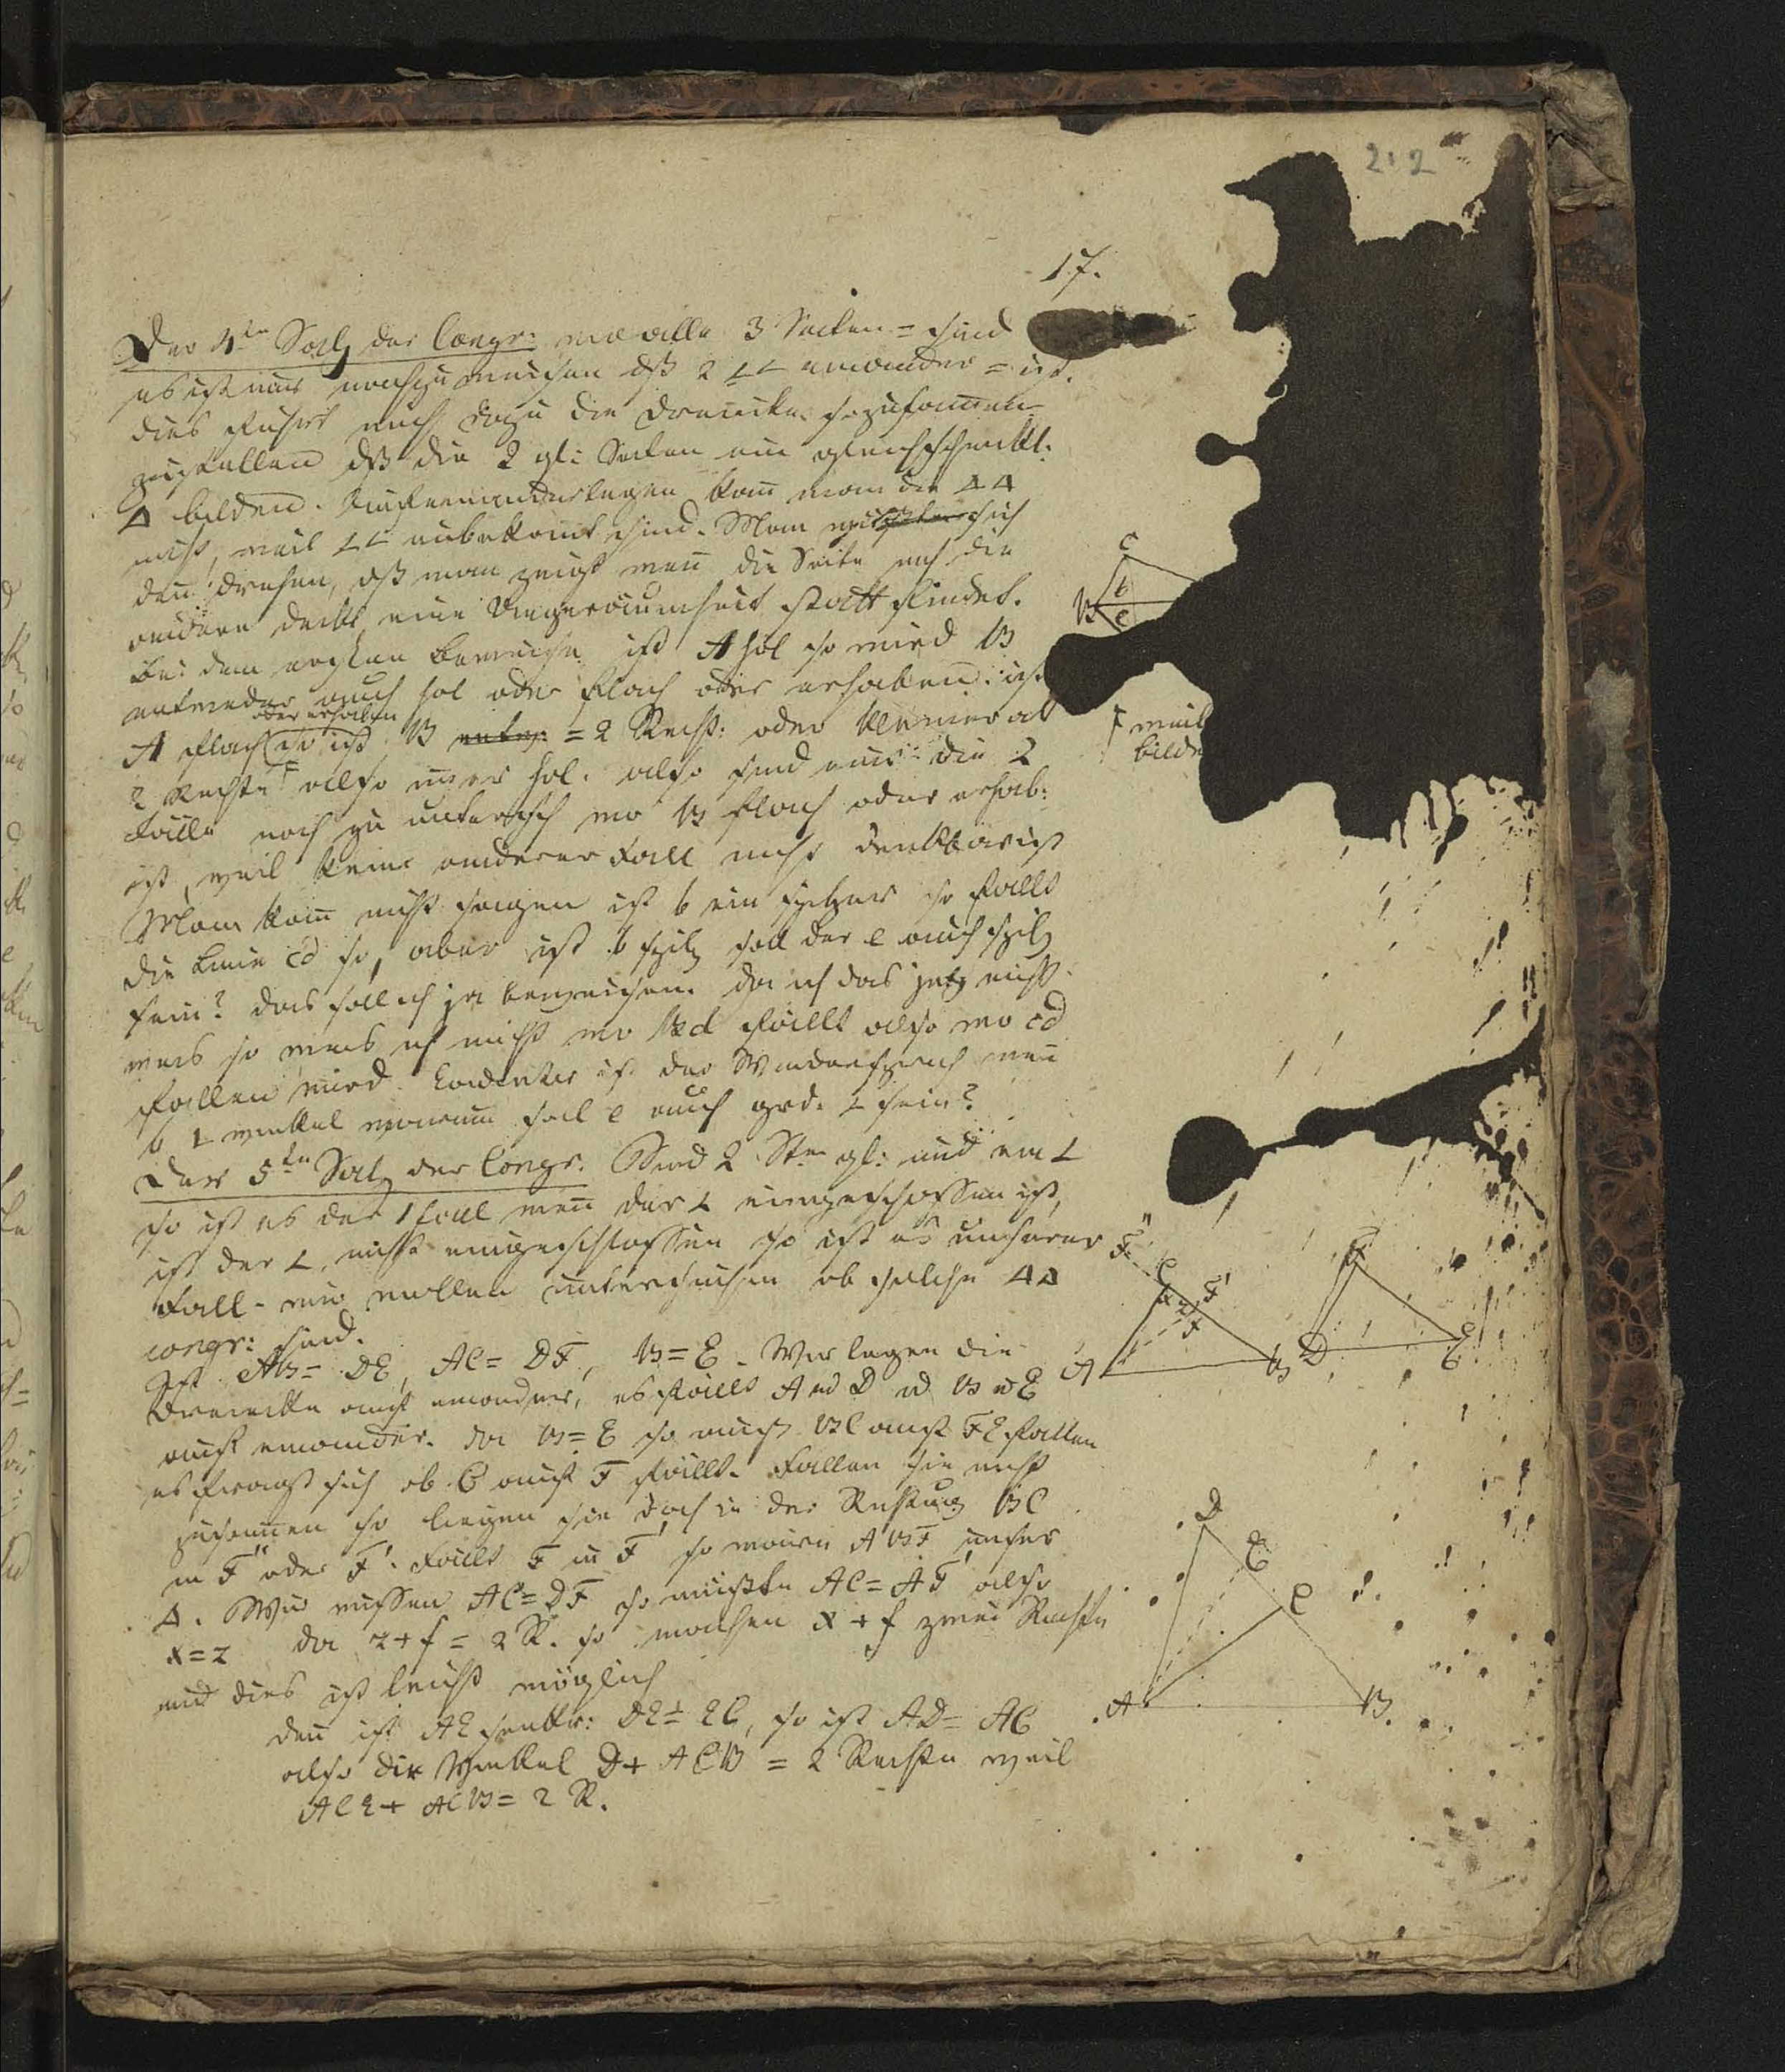 212
17.
Der 4te Satz der Congr: wo alle 3 Seiten = sind
es ist nur nachzuweisen dß 2 ∠∠ einander = ist.
dies führt mich dazu die Dreiecke so zusamen
zustellen dß die 2 gl: Seiten ein gleichschenkl:
Δ bilden. Aufeinanderlegen kann man die ΔΔ
nicht, weil ∠∠ unbekannt sind. Man
den drehen, dß man zeigt wenn die Seite nch die
andere deckt, eine Ungereimtheit statt findet.
Bei dem ersten Beweise ist A hol so wird B
entweder auch hol oder flach oder erhaben. ist
oder erhaben
A flach so ist B entw: = 2 Recht: oder kleiner als
2 Rechte F also imer hol. also sind nur die 2
Fälle noch zu untersuch wo B flach oder erhab:
ist, weil keine anderer Fall nicht denkbar ist
Man kann nicht sagen ist b ein spitzer so fällt
die Linie cd so, aber ist b spitz soll der e auch spitz
sein? das soll ich ja beweisen. da ich das jetz nicht
weis so weis ich nicht wo Bd fällt also wo cd
fallen wird. Evidenter ist der Wiedersspruch wen
b ∟ winkel warum soll e auch grd. ∠ sein?
Der 5te Satz der Congr. Sind 2 Sten gl: und ein ∠
so ist es der 1 Fall wen der ∠ eingeschossen ist,
ist der ∠ nicht eingeschlossen so ist es unserer
Fall - wir wollen untersuchen ob solche ΔΔ
congr: sind.
Ist AB = DE, AC = DF, B = E. Wir legen die
Dreiecke auf einander, es fällt A nd D nd B nd E
auf einander. da B = E so muß BC auf FE fallen
es fragt sich ob C auf F fällt. Fallen sie nicht
zusamen so liegen sie doch in der Richtung BC
in F'' oder F'. Fällt F in F' so wäre ABF' unser
Δ. Wir wissen AC = DF so müßte AC = AF' also
x = z da z + f = 2 R. so machen x + f zwei Rechte
und dies ist leicht möglich
den ist AE senkr: DE = EC, so ist AD = AC
also die Winkel D + ACB = 2 Rechte weil
ACE + ACB = 2 R.
C
b
B e
F weil
bilde
F''
C F'
x z f
A B
F
D E
D
E
C
A B.